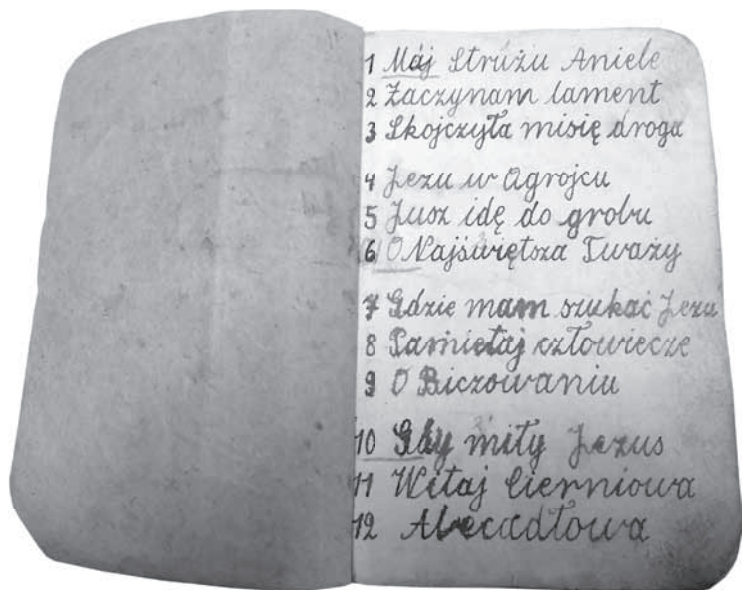 1 Mój Stróżu Aniele
2 Zaczynam lament
3 Skojczyła misię droga
4 Jezu w Agrojcu
5 Jusz idę do grobu
6 O Najświętsza Tważy
7 Gdzie mam szukać Jezu
8 Pamiętaj człowiecze
9 O Biczowaniu
10 Gdy miły Jezus
11 Witaj Cierniowa
12 Abecadłowa